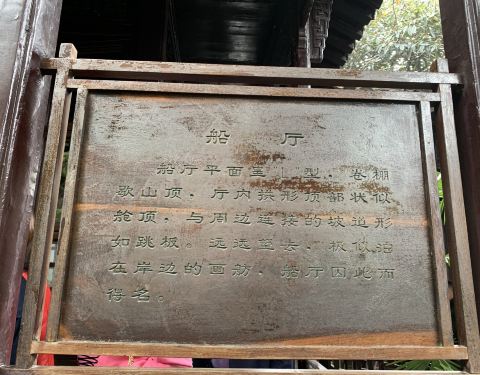 船 厅
船厅平面呈 型，卷棚
歇山顶，厅内拱形顶部状似
舱顶，与周边连接的坡道形
如跳板。远远望去，极似泊
在岸边的画舫，船厅因此而
得名。